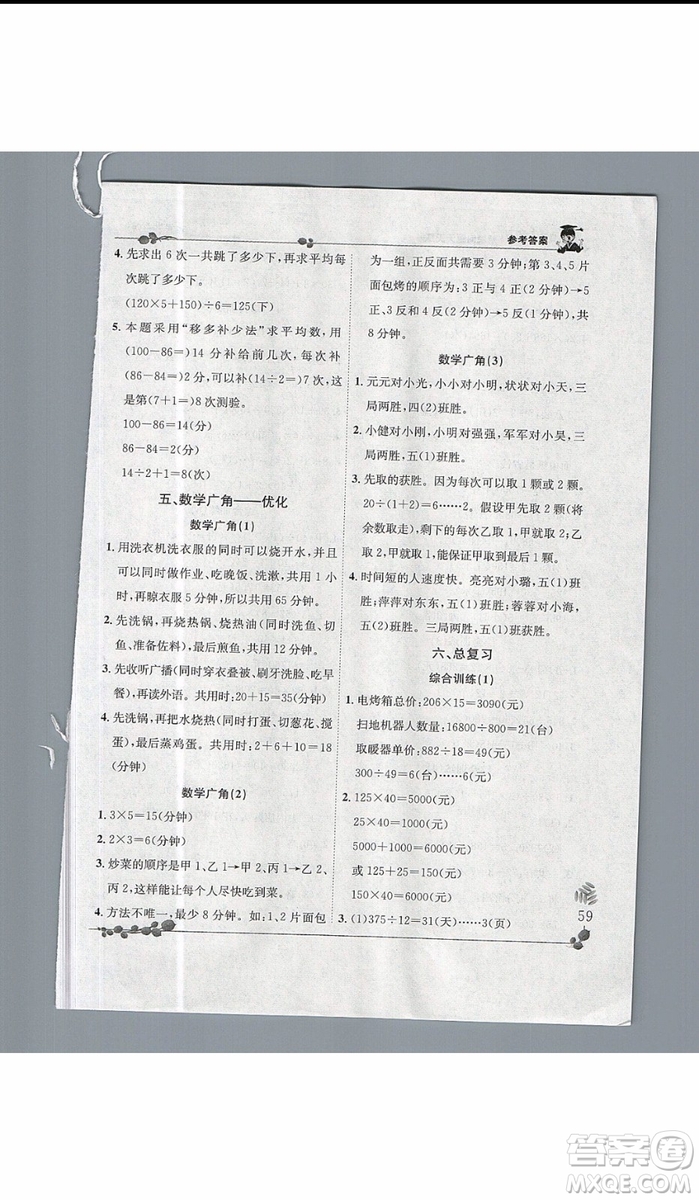 参考答案
4. 先求出 6 次一共跳了多少下，再求平均每
次跳了多少下。
(120×5+150)÷6=125(下)
5. 本题采用“移多补少法”求平均数，用
(100-86=)14 分补给前几次，每次补
(86-84=)2 分，可以补(14÷2=)7 次，
这是第(7+1=)8 次测验。
100-86=14(分)
86-84=2(分)
14÷2+1=8(次)
五、数学广角——优化
数学广角(1)
1. 用洗衣机洗衣服的同时可以烧开水，并
同时做作业、吃晚饭、洗漱，共用 1 小
时，再晾衣服 5 分钟，所以共用 65 分钟。
2. 先洗锅，再烧热锅、烧热油(同时洗鱼、
切鱼、准备佐料)，最后煎鱼，共用 12 分钟。
3. 先收听广播(同时穿衣叠被、刷牙洗脸、吃早
餐)，再读外语。共用时：20+15=35(分钟)
4. 先洗锅，再把水烧热(同时打蛋、切葱花、搅
蛋)，最后蒸鸡蛋。共用时：2+6+10=18
(分钟)
数学广角(2)
1. 3×5=15(分钟)
2. 2×3=6(分钟)
3. 炒菜的顺序是甲 1、乙 1→甲 2、丙 1→乙 2、
丙 2。这样能让每个人尽快吃到菜。
4. 方法不唯一，最少 8 分钟。如：1、2 片面包
为一组，正反面烤需要 3 分钟；第 3、4、5 片
面包烤的顺序为：3 正与 4 正(2 分钟)→5
正、3 反和 4 反(2 分钟)→5 反(1 分钟)，共
8 分钟。
数学广角(3)
1. 元元对小光，小小对小明，状状对小天，三
局两胜，四(2)班胜。
2. 小健对小刚，小明对强强，军军对小昊，
三局两胜，五(1)班胜。
3. 先取的获胜。因为每次可以取 1 颗或 2 颗。
20÷(1+2)=6……2。假设甲先取 2 颗(将
余数取走)，剩下的每次乙取 1 颗，甲就取 2
颗；乙取 2 颗，甲就取 1 颗，能保证甲取到最后 1 颗。
4. 时间短的人速度快。亮亮对小璐，五(1)班
胜；萍萍对东东，五(1)班胜；蓉蓉对小海，
五(2)班胜。三局两胜，五(1)班胜。
六、总复习
综合训练(1)
1. 电烤箱总价：206×15=3090(元)
扫地机器人数量：16800÷800=21(台)
取暖器单价：882÷18=49(元)
300÷49=6(台)……6(元)
2. 125×40=5000(元)
25×40=1000(元)
5000+1000=6000(元)
或 125+25=150(元)
150×40=6000(元)
3. (1)375÷12=31(天)……3(页)
59
答案圈
MXQE.COM